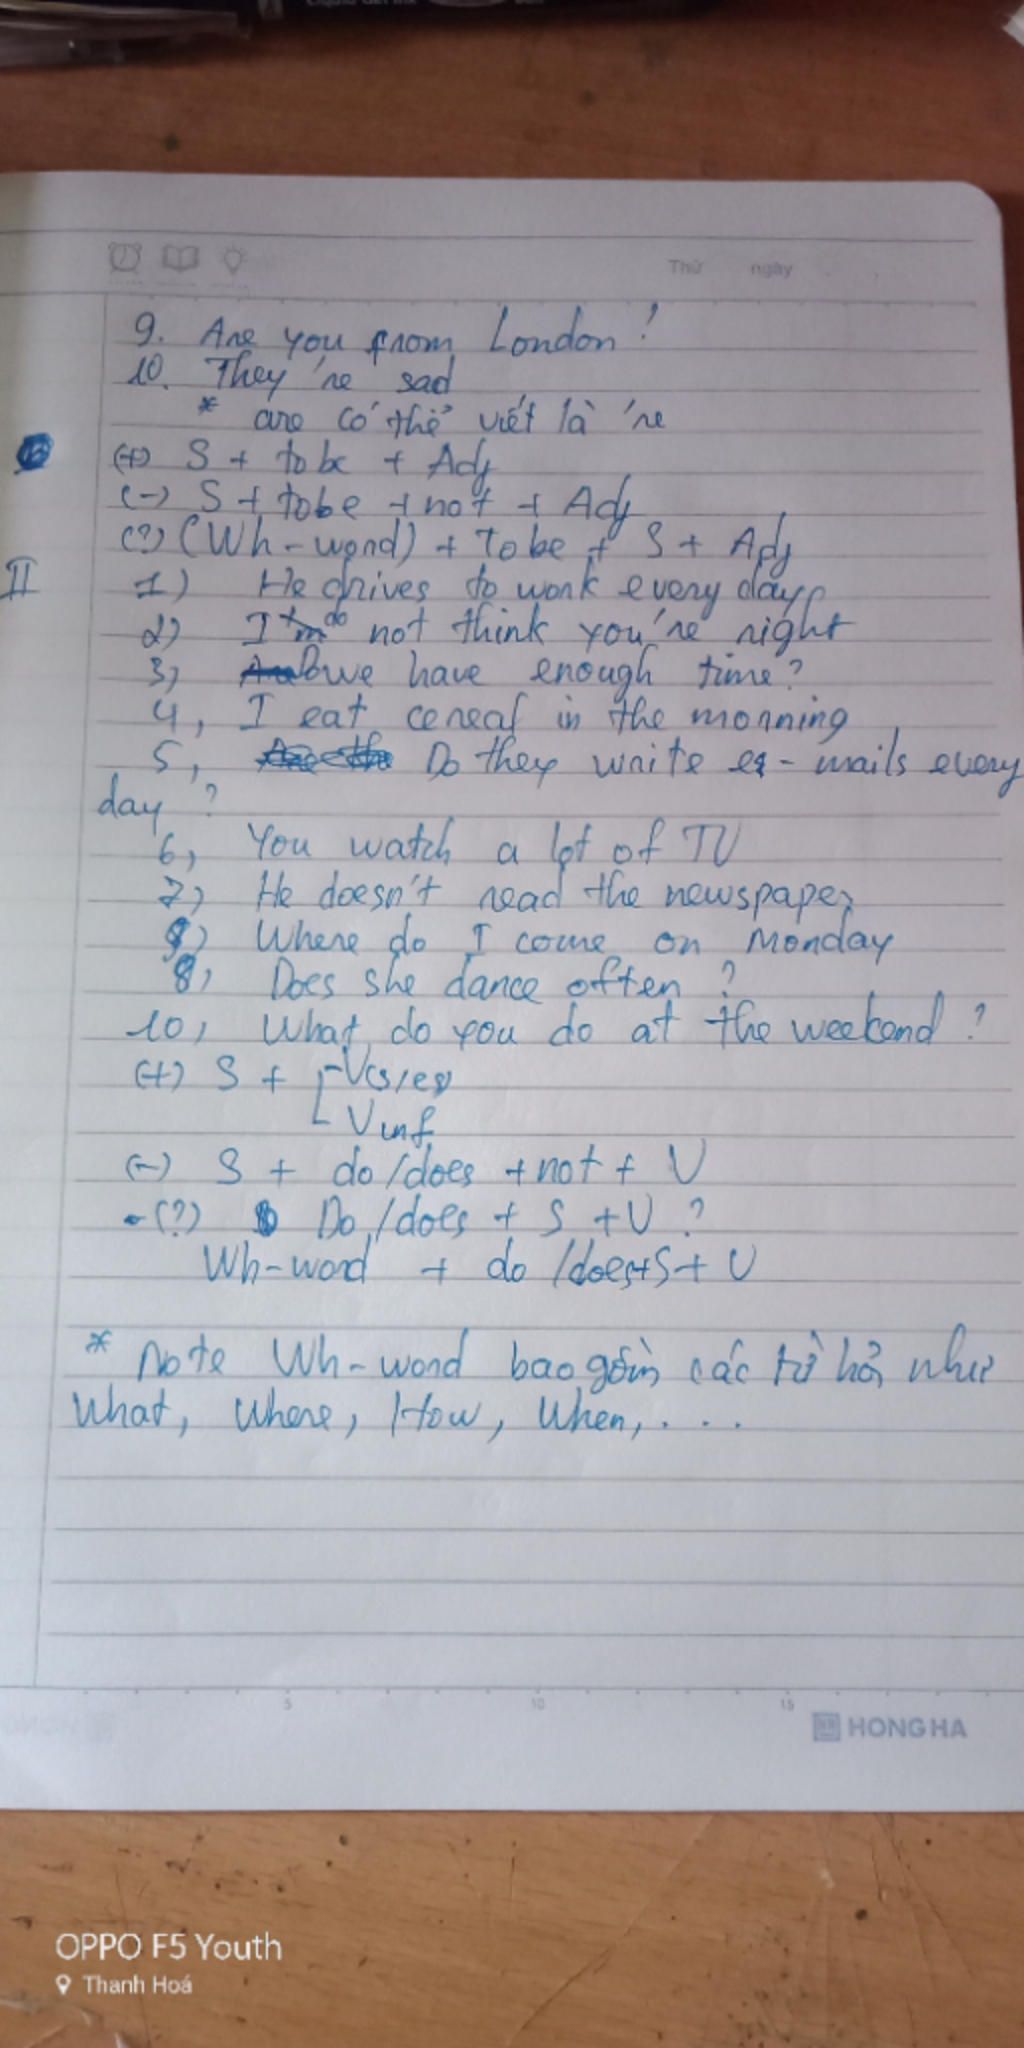 Thứ ngày
9. Are you from London !
10. They 're sad
* are có thể viết là 're
(+) S + to be + Adj
(-) S + tobe + not + Adj
(?) (Wh-word) + To be + S + Adj
II 1) He drives to work every day
2) I do not think you're right
3, Do we have enough time?
4, I eat cereal in the morning
5, Do they write e-mails every
day ?
6, You watch a lot of TV
7, He doesn't read the newspaper
9) Where do I come on Monday
8, Does she dance often ?
10, What do you do at the weekend ?
(+) S + V(s/es)
Vinf
(-) S + do/does + not + V
-(?) Do/does + S + V ?
Wh-word + do /does+S+ V
* Note Wh-word bao gồm các từ hỏi như
What, Where, How, When, . . .
5 10 15
HONG HA
OPPO F5 Youth
Thanh Hoá